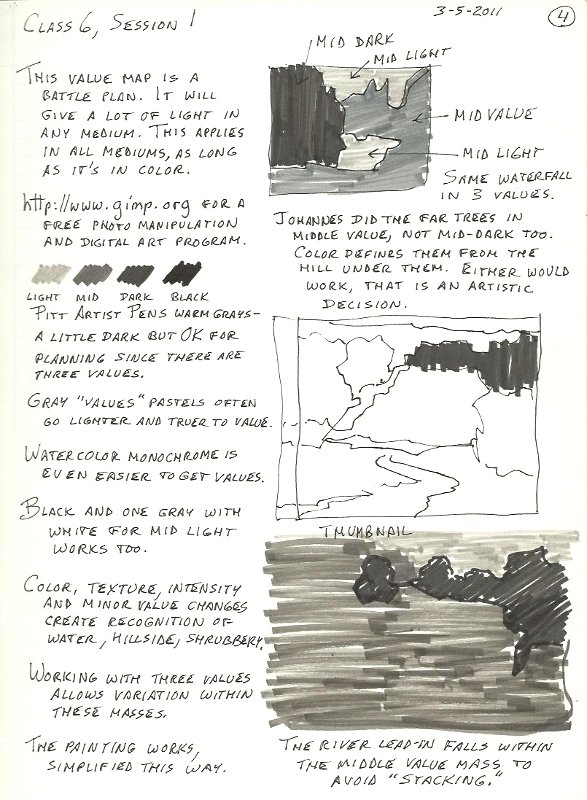 Class 6, Session 1
3-5-2011
4
This value map is a
battle plan. It will
give a lot of light in
any medium. This applies
in all mediums, as long
as it's in color.
http://www.gimp.org for a
free photo manipulation
and digital art program.
Light Mid Dark Black
Pitt Artist Pens warm grays-
a little dark but OK for
planning since there are
three values.
Gray "values" pastels often
go lighter and truer to value.
Watercolor monochrome is
even easier to get values.
Black and one gray with
white for mid light
works too.
Color, texture, intensity
and minor value changes
create recognition of
water, hillside, shrubbery.
Working with three values
allows variation within
these masses.
The painting works,
simplified this way.
Mid Dark
Mid Light
Mid Value
Mid Light
Same waterfall
in 3 values.
Johannes did the far trees in
middle value, not mid-dark too.
Color defines them from the
hill under them. Either would
work, that is an artistic
decision.
Thumbnail
The river lead-in falls within
the middle value mass to
avoid "stacking."